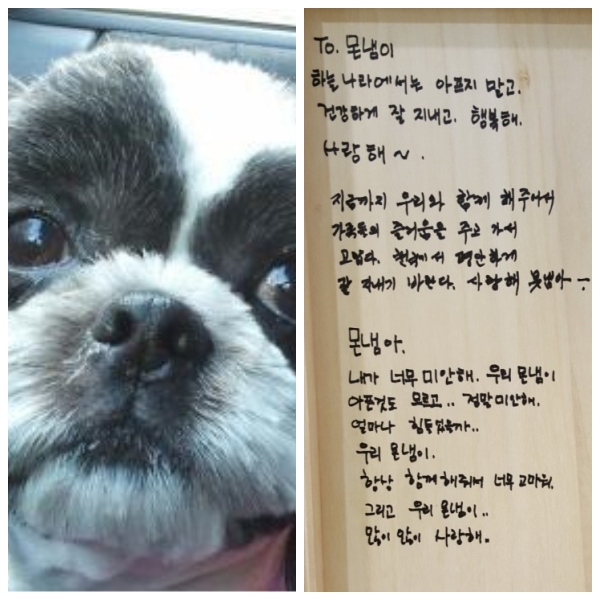 To. 몬냄이
하늘나라에서는 아프지 말고.
건강하게 잘 지내고. 행복해.
사랑해~.
지금까지 우리와 함께 해주어서
가족들의 즐거움을 주고 가서
고맙다. 천국에서 편안하게
잘 지내기 바란다. 사랑해 못냄아
몬냄아.
내가 너무 미안해. 우리 몬냄이
아픈것도 모르고.. 정말미안해.
얼마나 힘들었을까..
우리 몬냄이.
항상 함께해줘서 너무 고마워.
그리고 우리 몬냄이..
많이 많이 사랑해.